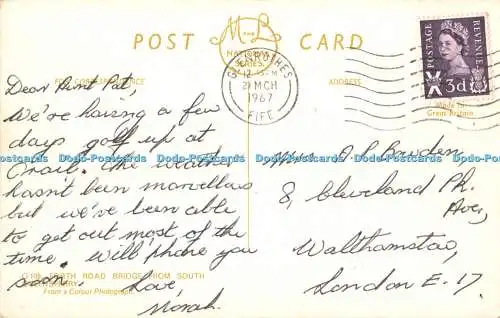 POST CARD
M & L
NATIONAL
SERIES
FOR CORRESPONDENCE
ADDRESS
GLENROTHES
12.15 PM
MCH
1967
FIFE
POSTAGE
REVENUE
3d
Made in
Great Britain
Dear Aunt Pat,
We're having a few
days golf up at
Crail. The weather
hasn't been marvellous
but we've been able
to get out most of the
time. Will phone you
soon.
Love,
Norah.
FORTH ROAD BRIDGE FROM SOUTH
From a Colour Photograph
Mrs A P Bowden,
8, Cleveland Pk.
Ave,
Walthamstow,
London E.17.
Dodo-Postcards Dodo-Postcards Dodo-Postcards Dodo-Postcards